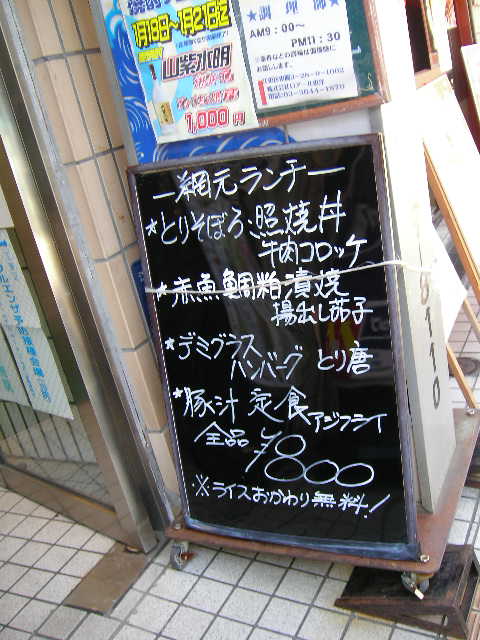 1月19日〜1月21日迄
山紫水明
1,000円
★調理師★
AM9:00〜
PM11:30
ー網元ランチー
★とりそぼろ照焼丼
牛肉コロッケ
★赤魚鯛粕漬焼
揚出し茄子
★デミグラス
ハンバーグ とり唐
★豚汁定食 アジフライ
全品
¥800
※ライスおかわり無料!
8110